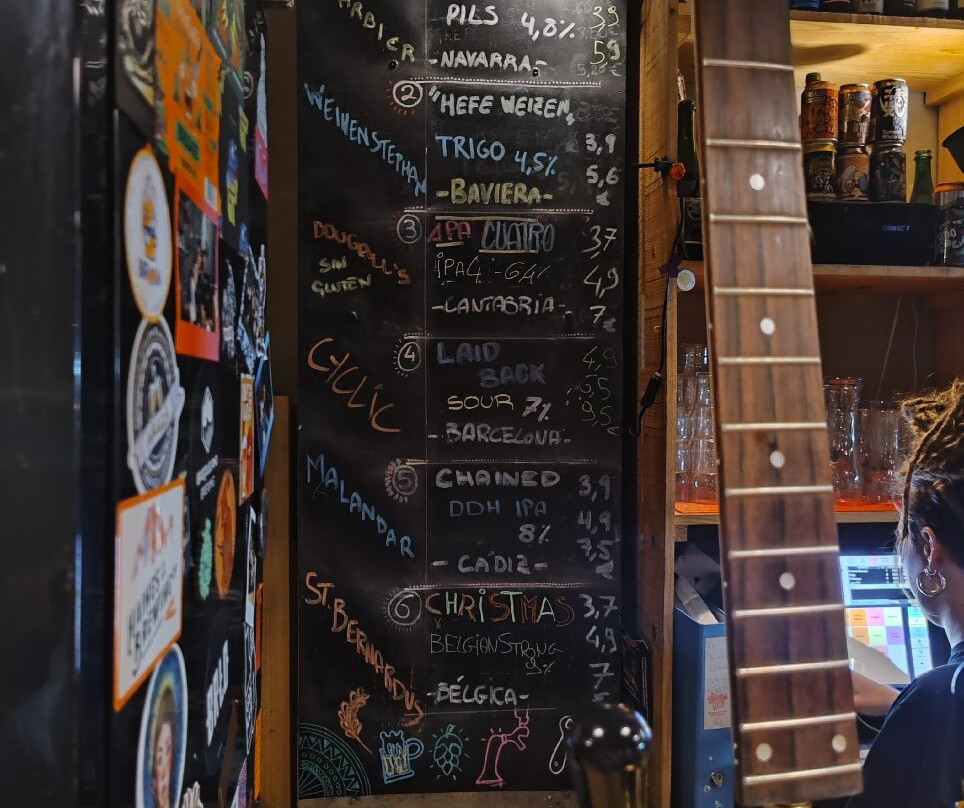 PILS 4,8%
-NAVARRA-
2
WEIHENSTEPHAN
"HEFE WEIZEN"
TRIGO 4,5%
-BAVIERA-
3,9
5,6
€
3
DOUGALL'S
SIN
GLUTEN
APA CUATRO
IPA4 - 6,4%
-CANTABRIA-
3,7
4,9
7€
4
CYCLIC
LAID
BACK
SOUR 7%
-BARCELONA-
4,9
5,5
9,5€
5
MALANDAR
CHAINED
DDH IPA
8%
- CADIZ -
3,9
4,9
7,5
€
6
ST. BERNARDUS
CHRISTMAS
BELGIAN STRONG
-BÉLGICA-
3,7
4,9
7
€